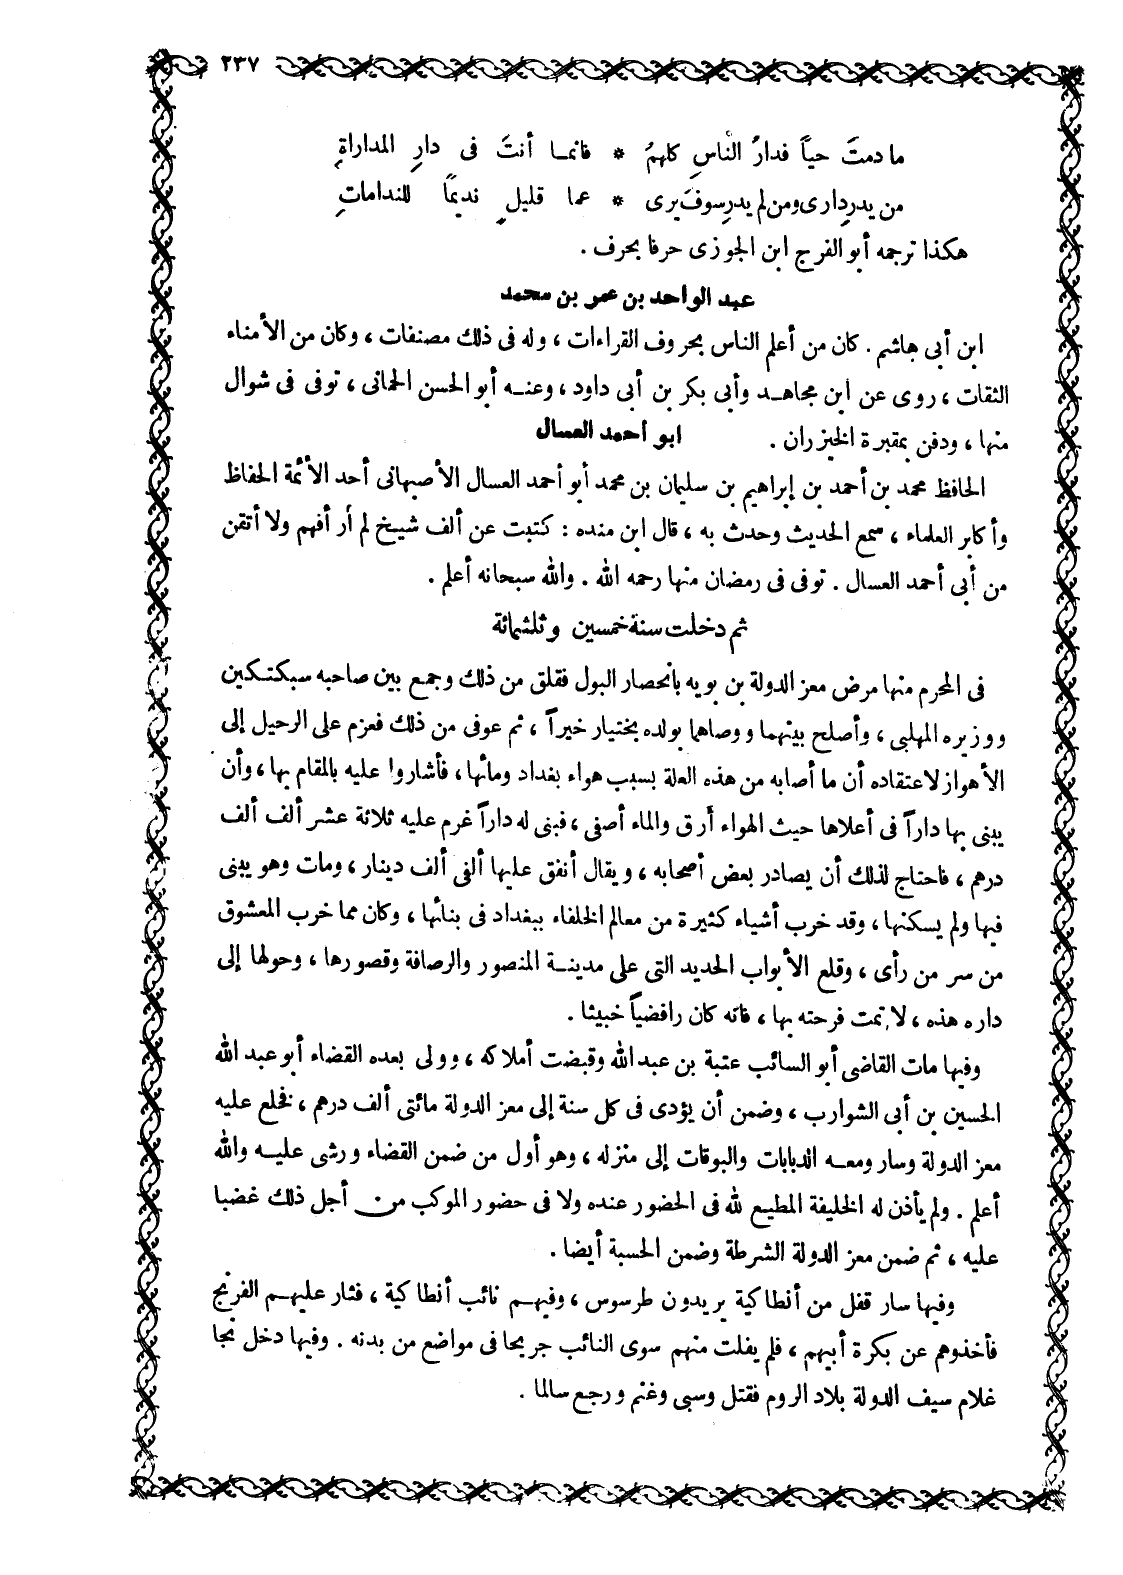 ٢٣٧
ما دمتَ حياً فدارِ الناسِ كلهمُ * فانمـا أنتَ فى دارِ المداراةِ
من يدرِ دارى ومن لم يدرِ سوف يرى * عما قليلٍ نديمًا للنداماتِ
هكذا ترجمه أبو الفرج ابن الجوزى حرفا بحرف .
عبد الواحد بن عمر بن محمد
ابن أبى هاشم . كان من أعلم الناس بحروف القراءات ، وله فى ذلك مصنفات ، وكان من الأمناء
الثقات ، روى عن ابن مجاهـد وأبى بكر بن أبى داود ، وعنـه أبو الحسن الحمانى ، توفى فى شوال
منها ، ودفن بمقبرة الخيزران . ابو احمد العسال
الحافظ محمد بن أحمد بن إبراهيم بن سليمان بن محمد أبو أحمد العسال الأصبهانى أحد الأئمة الحفاظ
وأكابر العلماء ، سمع الحديث وحدث به ، قال ابن منده : كتبت عن ألف شيخ لم أر أفهم ولا أتقن
من أبى أحمد العسال . توفى فى رمضان منها رحمه الله . والله سبحانه أعلم .
ثم دخلت سنة خمسين وثلثمائة
فى المحرم منها مرض معز الدولة بن بويه بانحصار البول فقلق من ذلك وجمع بين صاحبه سبكتـكين
ووزيره المهلبى ، وأصلح بينهما ووصاهما بولده بختيار خيراً ، ثم عوفى من ذلك فعزم على الرحيل إلى
الأهواز لاعتقاده أن ما أصابه من هذه العلة بسبب هواء بغداد ومائها ، فأشاروا عليه بالمقام بها ، وأن
يبنى بها داراً فى أعلاها حيث الهواء أرق والماء أصفى ، فبنى له داراً غرم عليه ثلاثة عشر ألف ألف
درهم ، فاحتاج لذلك أن يصادر بعض أصحابه ، ويقال أنفق عليها ألفى ألف دينار ، ومات وهو يبنى
فيها ولم يسكنها ، وقد خرب أشياء كثيرة من معالم الخلفاء ببغداد فى بنائها ، وكان مما خرب المعشوق
من سر من رأى ، وقلع الأبواب الحديد التى على مدينـة المنصور والرصافة وقصورها ، وحولها إلى
داره هذه ، لا تمت فرحته بها ، فانه كان رافضياً خبيثا .
وفيها مات القاضى أبو السائب عتبة بن عبد الله وقبضت أملاكه ، وولى بعده القضاء أبو عبد الله
الحسين بن أبى الشوارب ، وضمن أن يؤدى فى كل سنة إلى معز الدولة مائتى ألف درهم ، فخلع عليه
معز الدولة وسار ومعـه الدبابات والبوقات إلى منزله ، وهو أول من ضمن القضاء ورشى عليـه والله
أعلم . ولم يأذن له الخليفة المطيع لله فى الحضور عنده ولا فى حضور الموكب من أجل ذلك غضبا
عليه ، ثم ضمن معز الدولة الشرطة وضمن الحسبة أيضا .
وفيها سار قفل من أنطاكية يريدون طرسوس ، وفيهـم نائب أنطاكية ، فثار عليهـم الفرنج
فأخذوهم عن بكرة أبيهم ، فلم يفلت منهم سوى النائب جريحا فى مواضع من بدنه . وفيها دخل نجا
غلام سيف الدولة بلاد الروم فقتل وسبى وغنم ورجع سالما .